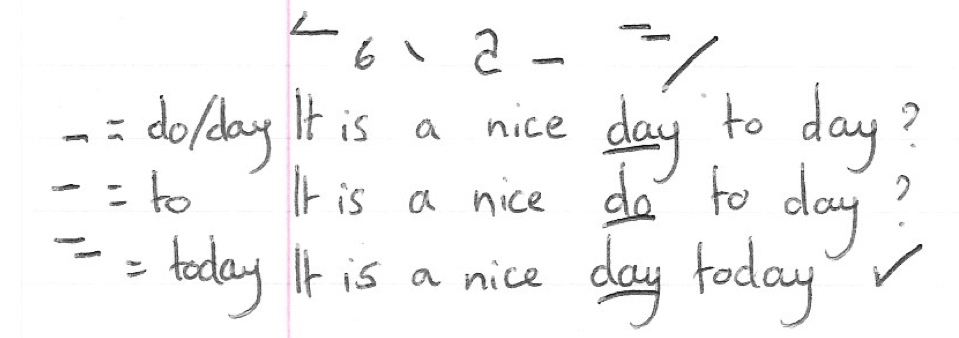 _ = do/day It is a nice day to day?
– = to It is a nice do to day?
= today It is a nice day today ✓